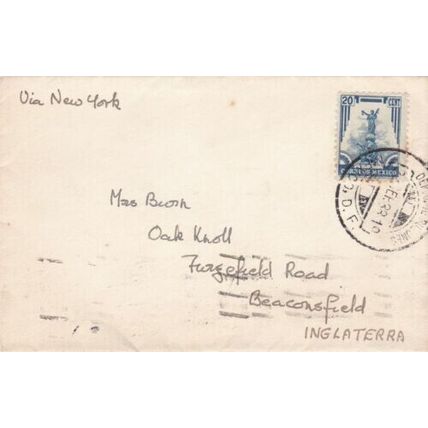 Via New York
20 CTS
CORREOS MEXICO
D.F.
Mrs Born
Oak Knoll
Furzefield Road
Beaconsfield
INGLATERRA